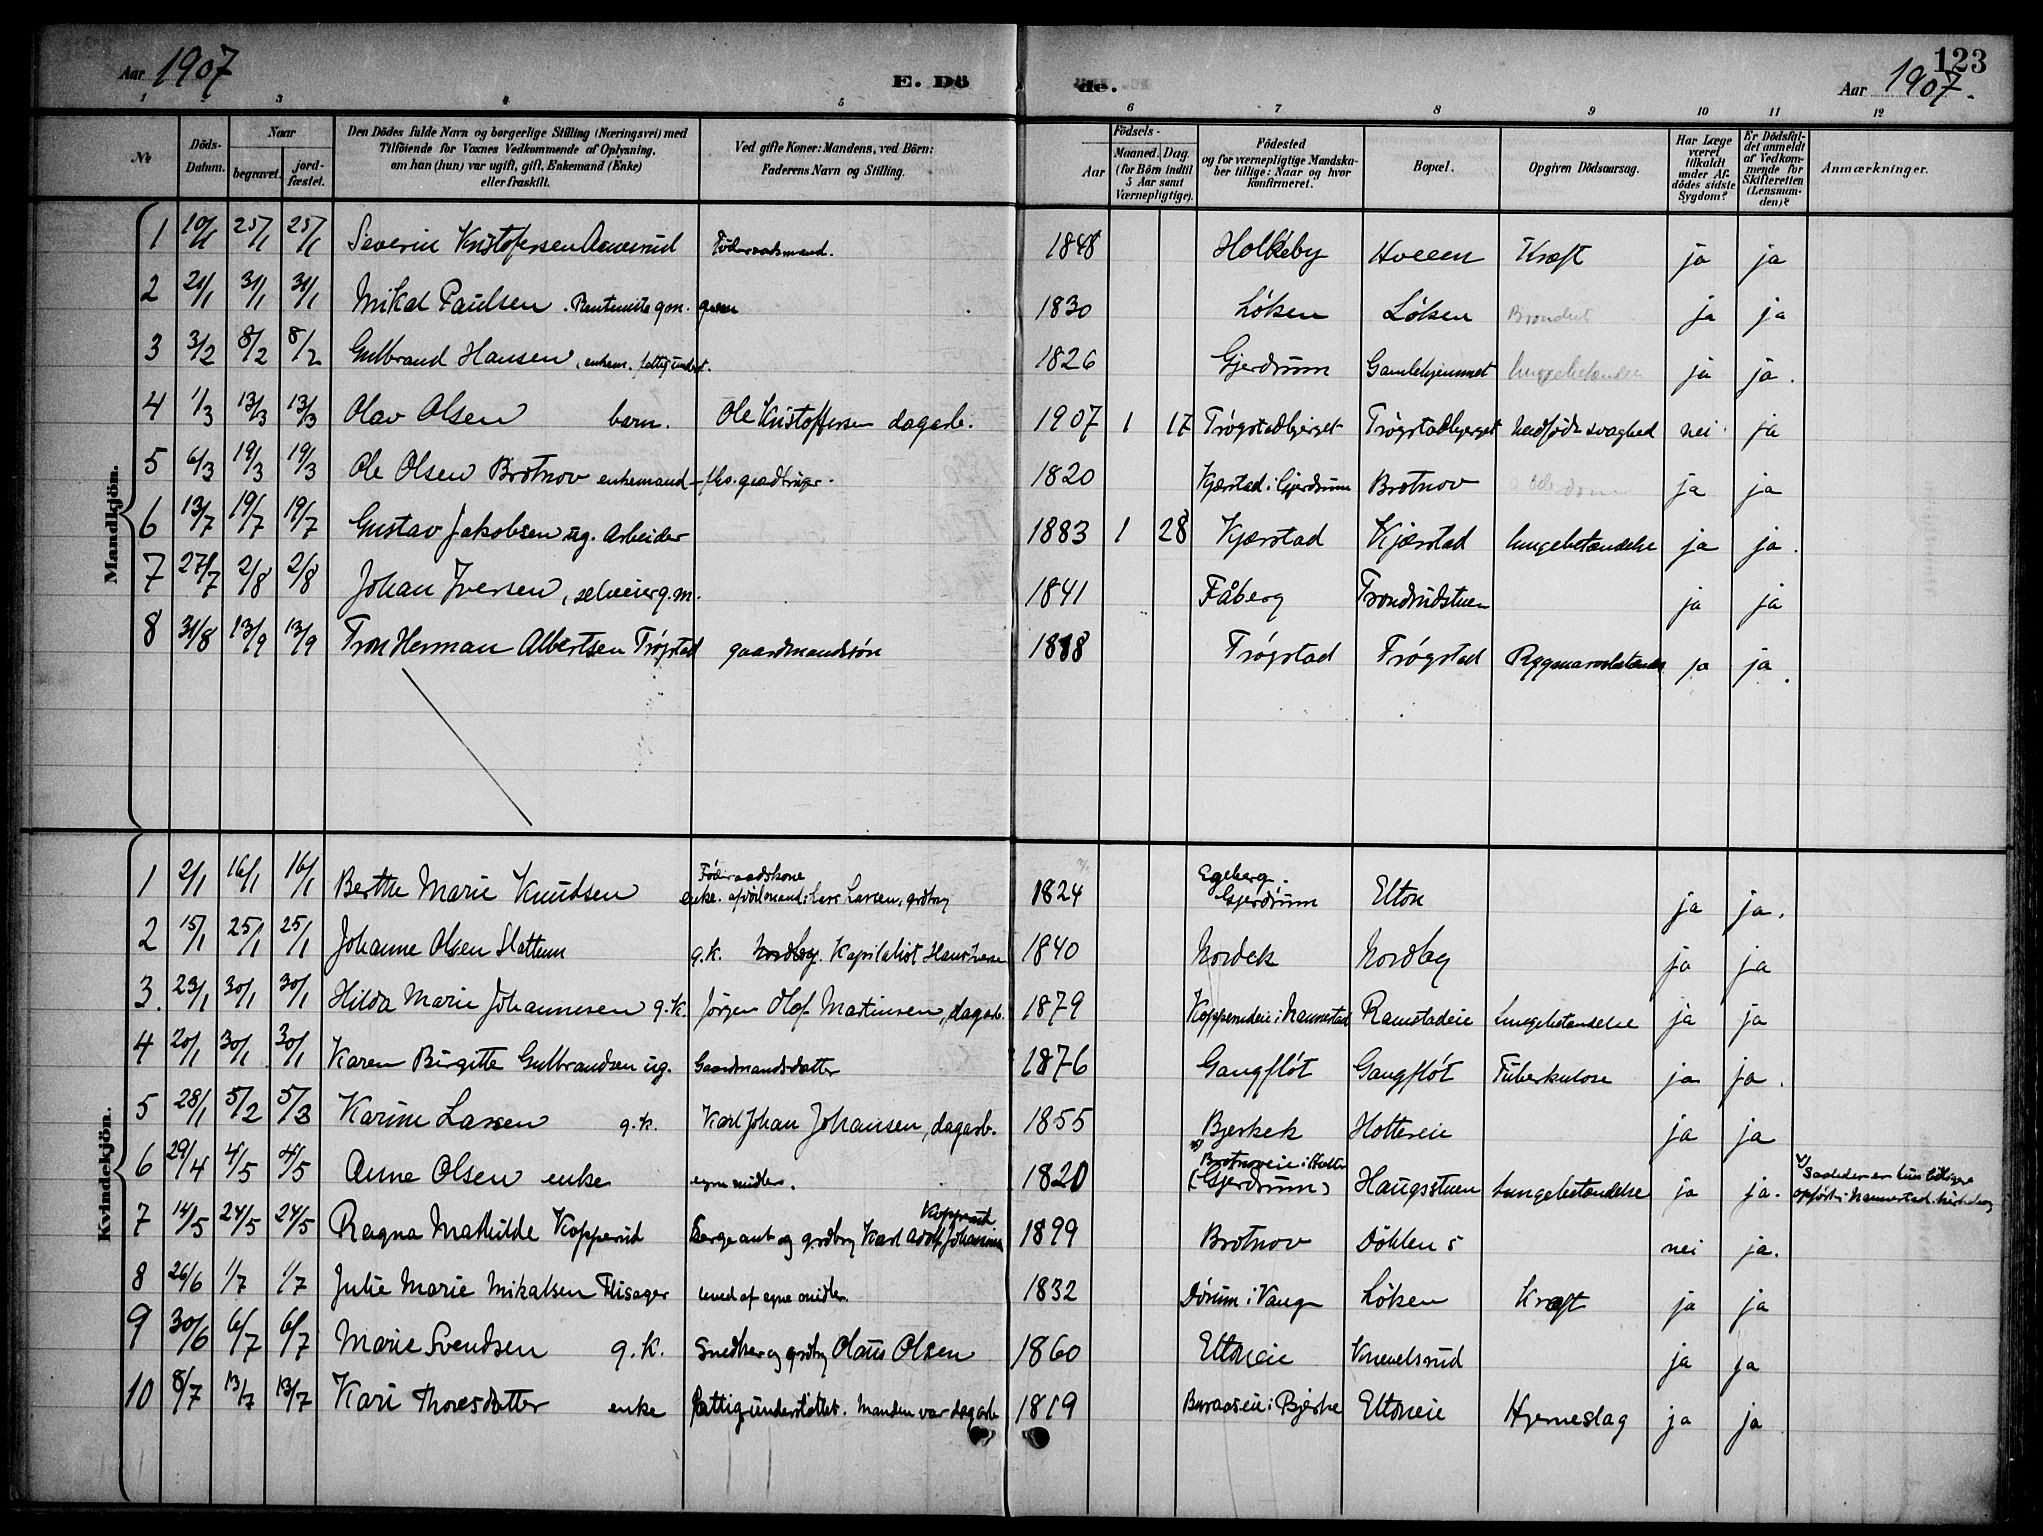 Aar 1907 E. Dö de. Aar 1907. 123
1 2 3 4 5 6 7 8 9 10 11 12
No
Döds-Datum.
Naar
begravet. jord-fæstet.
Den Dödes fulde Navn og borgerlige Stilling (Næringsvei) med
Tilföiende for Voxnes Vedkommende af Oplysning,
om han (hun) var ugift, gift, Enkemand (Enke)
eller fraskilt.
Ved gifte Koner: Mandens, ved Börn:
Faderens Navn og Stilling.
Födsels-
Aar Maaned. Dag.
(for Börn indtil
5 Aar samt
Værnepligtige).
Födested
og for værnepligtige Mandska-
ber tillige: Naar og hvor
konfirmeret.
Bopæl.
Opgiven Dödsaarsag.
Har Læge
været
tilkaldt
under Af-
dödes sidste
Sygdom?
Er Dödsfal-
det anmeldt
af Vedkom-
mende for
Skifteretten
(Lensman-
den)?
Anmærkninger.
Mandkjön.
1 10/1 25/1 25/1 Severin Kristofersen Føderaadsmand. 1848 Holkeby Kræft ja ja
2 21/1 31/1 31/1 Mikal Paulsen. 1830 Løken Løken ja ja
3 3/2 8/2 8/2 Gulbrand Hansen, enkem. fattigunderst. 1826 Gjerdrum Gamlehjemmet ja ja.
4 1/3 13/3 13/3 Olav Olsen barn. Ole Kristoffersen dagarb. 1907 1 17 Trøgstadbjerget Trøgstadbjerget Medfødt svaghed nei. ja
5 6/3 19/3 19/3 Ole Olsen Brotnov enkemand - fhv. gaardbruger. 1820 Kjærstad i Gjerdrum Brotnov ja ja
6 13/7 19/7 19/7 Gustav Jakobsen ug. Arbeider 1883 1 28 Kjærstad Kjærstad lungebetændelse ja ja.
7 27/7 2/8 2/8 Johan Iversen, selveier g.m. 1841 Fåberg Trondrudstuen ja ja
8 31/8 13/9 13/9 Tron Herman Albertsen Trøgstad gaardmandssøn 1888 Trøgstad Trøgstad ja ja.
Kvindekjön.
Føderaadskone
1 2/1 16/1 16/1 Berthe Marie Knudsen enke. Lars Larsen, grdbrg 1824 Egeberg. Gjerdrum Elton ja ja.
2 15/1 25/1 25/1 Johanne Olsen Slattum g.k. Nordby. Kapitalist 1840 Nordek Nordby ja ja
3. 23/1 30/1 30/1 Hilda Marie Johannesen g.k. Jørgen Olof Martinsen, dagarb. 1879 Ramstadeie Lungebetændelse ja ja
4 20/1 30/1 30/1 Karen Birgitte Gulbrandsen ug. Gaardmandsdatter 1876 Gangfløt Gangfløt Tuberkulose ja ja.
5 28/1 5/2 5/3 Karine Larsen g.k. Karl Johan Johansen, dagarb. 1855 Bjerkek Holtereie ja ja
6 29/4 4/5 4/5 Anne Olsen enke egne midler. 1820 x) Brotnoveie i Holter (Gjerdrum) Haugsstuen Lungebetændelse ja ja. x) Saaledes er hun tidligere
opført i Nannestad kirkebog
7 14/5 24/5 24/5 Ragna Mathilde Kopperud Sergeant og grdbrg Karl Adolf Johansen Kopperud 1899 Brotnov Döhlen s nei ja.
8 26/6 1/7 1/7 Julie Marie Mikalsen Flisager leved af egne midler. 1832 Dørum i Vang Løken Kræft ja ja
9 30/6 6/7 6/7 Marie Svendsen g.k. Snedker og grdbrg Olaus Olsen 1860 Eltoneie Knevelsrud ja ja
10 8/7 13/7 13/7 Kari Thoresdatter enke Fattigunderstøttet. Manden var dagarb. 1819 Buraaseie i Bjerke Eltoneie Hjerneslag ja ja